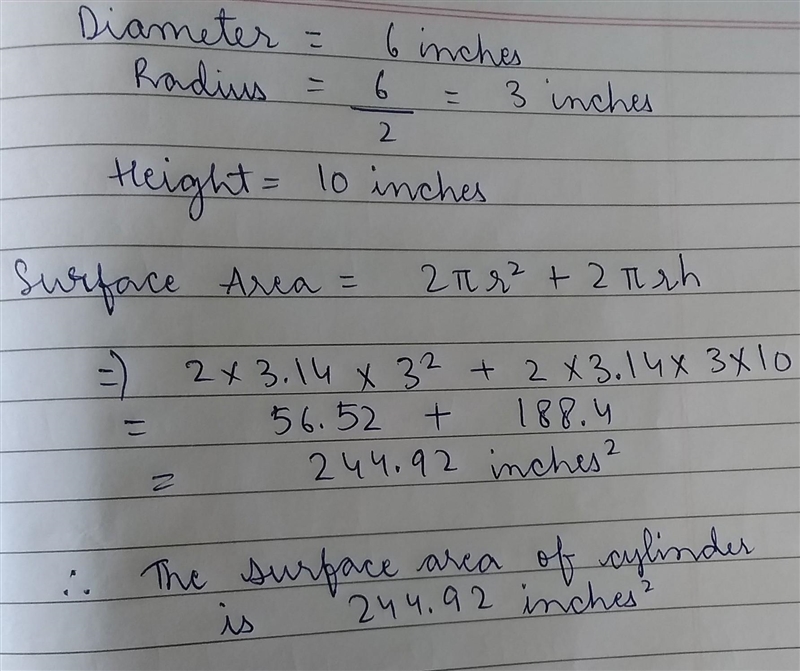 Diameter = 6 inches
Radius = 6/2 = 3 inches
Height = 10 inches
Surface Area = 2πr² + 2πrh
=) 2 × 3.14 × 3² + 2 × 3.14 × 3 × 10
= 56.52 + 188.4
= 244.92 inches²
∴ The surface area of cylinder
is 244.92 inches²